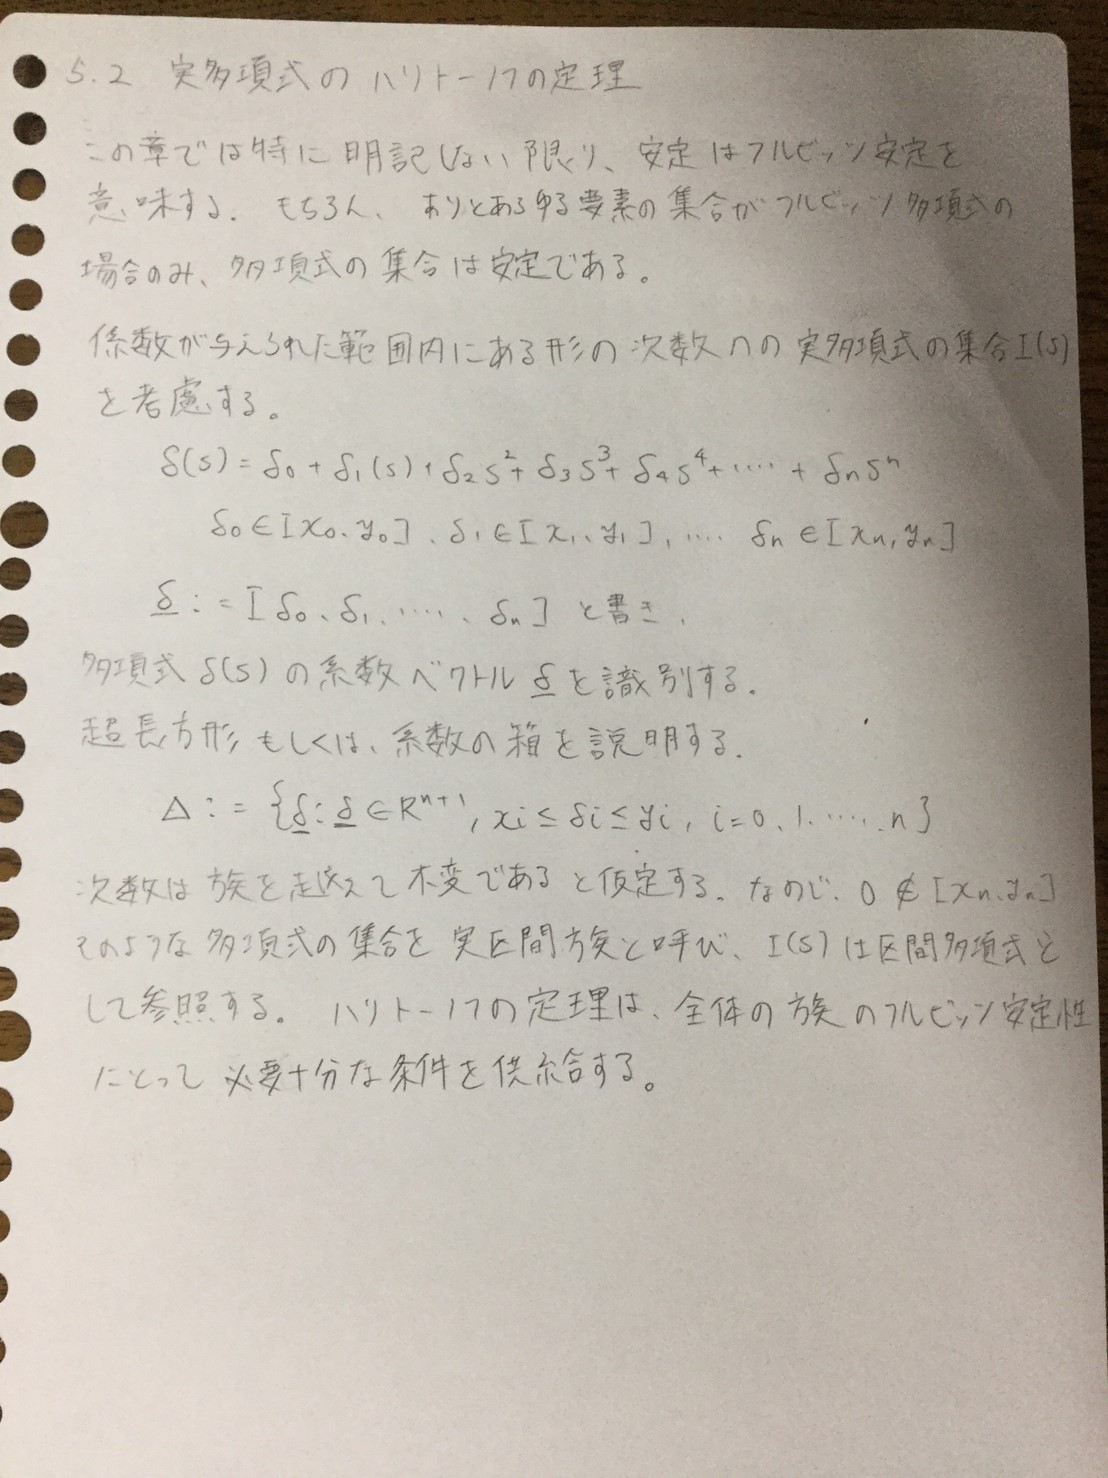 5.2 実多項式のハリトーノフの定理
この章では特に明記しない限り、安定はフルビッツ安定を
意味する. もちろん、ありとあらゆる要素の集合がフルビッツ多項式の
場合のみ、多項式の集合は安定である。
係数が与えられた範囲内にある形の次数nの実多項式の集合I(s)
を考慮する。
δ(s)=δ₀+δ₁(s)+δ₂s²+δ₃s³+δ₄s⁴+‥‥+δnsⁿ
δ₀∈[x₀、y₀]、δ₁∈[x₁、y₁],‥‥ δn∈[xn,yn]
δ̲:=[δ₀、δ₁、‥‥、δn]と書き、
多項式δ(s)の系数ベクトルδ̲を識別する.
超長方形もしくは、系数の箱を説明する.
Δ:={δ̲:δ̲∈Rⁿ⁺¹, xi≤δi≤yi, i=0、1、‥‥、n}
次数は族を超えて不変であると仮定する. なので、0∉[xn、yn]
そのような多項式の集合を実区間族と呼び、I(s)は区間多項式と
して参照する。 ハリトーノフの定理は、全体の族のフルビッツ安定性
にとって必要十分な条件を供給する。